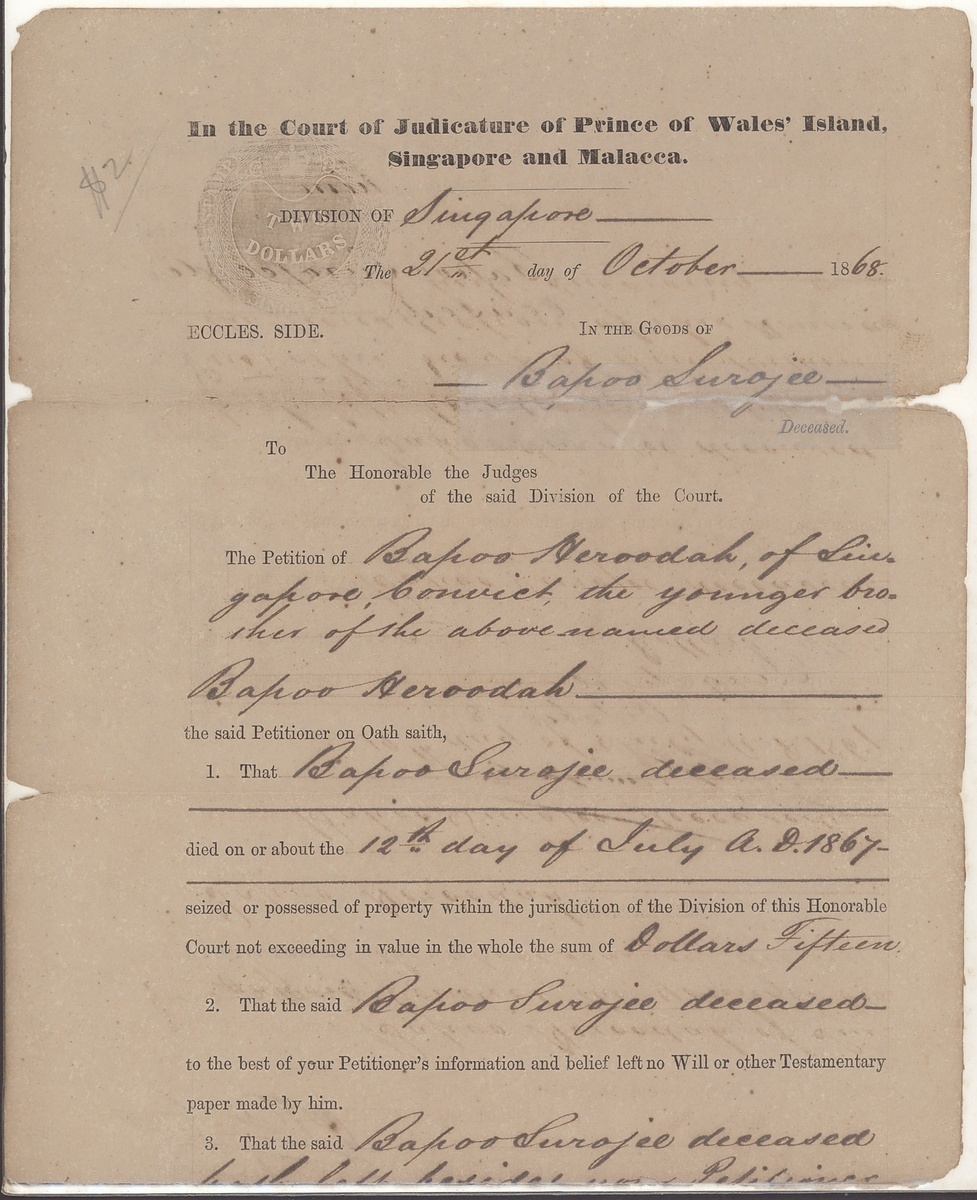 In the Court of Judicature of Prince of Wales' Island,
Singapore and Malacca.
$2.
TWO
DOLLARS
DIVISION OF Singapore
The 21st day of October 1868.
ECCLES. SIDE.
IN THE GOODS OF
Bapoo Surojee
Deceased.
To
The Honorable the Judges
of the said Division of the Court.
The Petition of Bapoo Heroodah, of Sin-
gapore, Convict, the younger bro-
ther of the above named deceased
Bapoo Heroodah
the said Petitioner on Oath saith,
1. That Bapoo Surojee deceased
died on or about the 12th day of July A.D. 1867-
seized or possessed of property within the jurisdiction of the Division of this Honorable
Court not exceeding in value in the whole the sum of Dollars Fifteen.
2. That the said Bapoo Surojee deceased
to the best of your Petitioner's information and belief left no Will or other Testamentary
paper made by him.
3. That the said Bapoo Surojee deceased
hath left besides your Petitioner